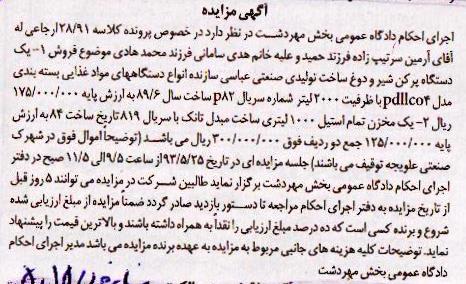 آگهی مزایده
اجرای احکام دادگاه عمومی بخش مهردشت در نظر دارد در خصوص پرونده کلاسه ۲۸/۹۱ ارجاعی له
آقای آرمین سرتیپ زاده فرزند حمید و علیه خانم هدی سامانی فرزند محمد هادی موضوع فروش ۱- یک
دستگاه پر کن شیر و دوغ ساخت تولیدی صنعتی عباسی سازنده انواع دستگاههای مواد غذایی بسته بندی
مدل pdllco۴ با ظرفیت ۲۰۰۰ لیتر شماره سریال p۸۲ ساخت سال ۸۹/۶ به ارزش پایه ۱۷۵/۰۰۰/۰۰۰
ریال ۲- یک مخزن تمام استیل ۱۰۰۰ لیتری ساخت مبدل تانک با سریال ۸۱۹ تاریخ ساخت ۸۴ به ارزش
پایه ۱۲۵/۰۰۰/۰۰۰ جمع دو ردیف فوق ۳۰۰/۰۰۰/۰۰۰ ریال می باشد (توضیحا اموال فوق در شهرک
صنعتی علویجه توقیف می باشند) جلسه مزایده ای در تاریخ ۹۳/۵/۲۵ از ساعت ۹/۵ الی ۱۱/۵ صبح در دفتر
اجرای احکام دادگاه عمومی بخش مهردشت برگزار نماید طالبین شرکت در مزایده می توانند ۵ روز قبل
از تاریخ مزایده به دفتر اجرای احکام مراجعه تا دستور بازدید صادر گردد ضمنا مزایده از مبلغ ارزیابی شده
شروع و برنده کسی است که ده درصد مبلغ ارزیابی را نقدا به همراه داشته باشند و بالاترین قیمت را پیشنهاد
نماید. توضیحات کلیه هزینه های جانبی مربوط به مزایده به عهده برنده مزایده می باشد مدیر اجرای احکام
دادگاه عمومی بخش مهردشت